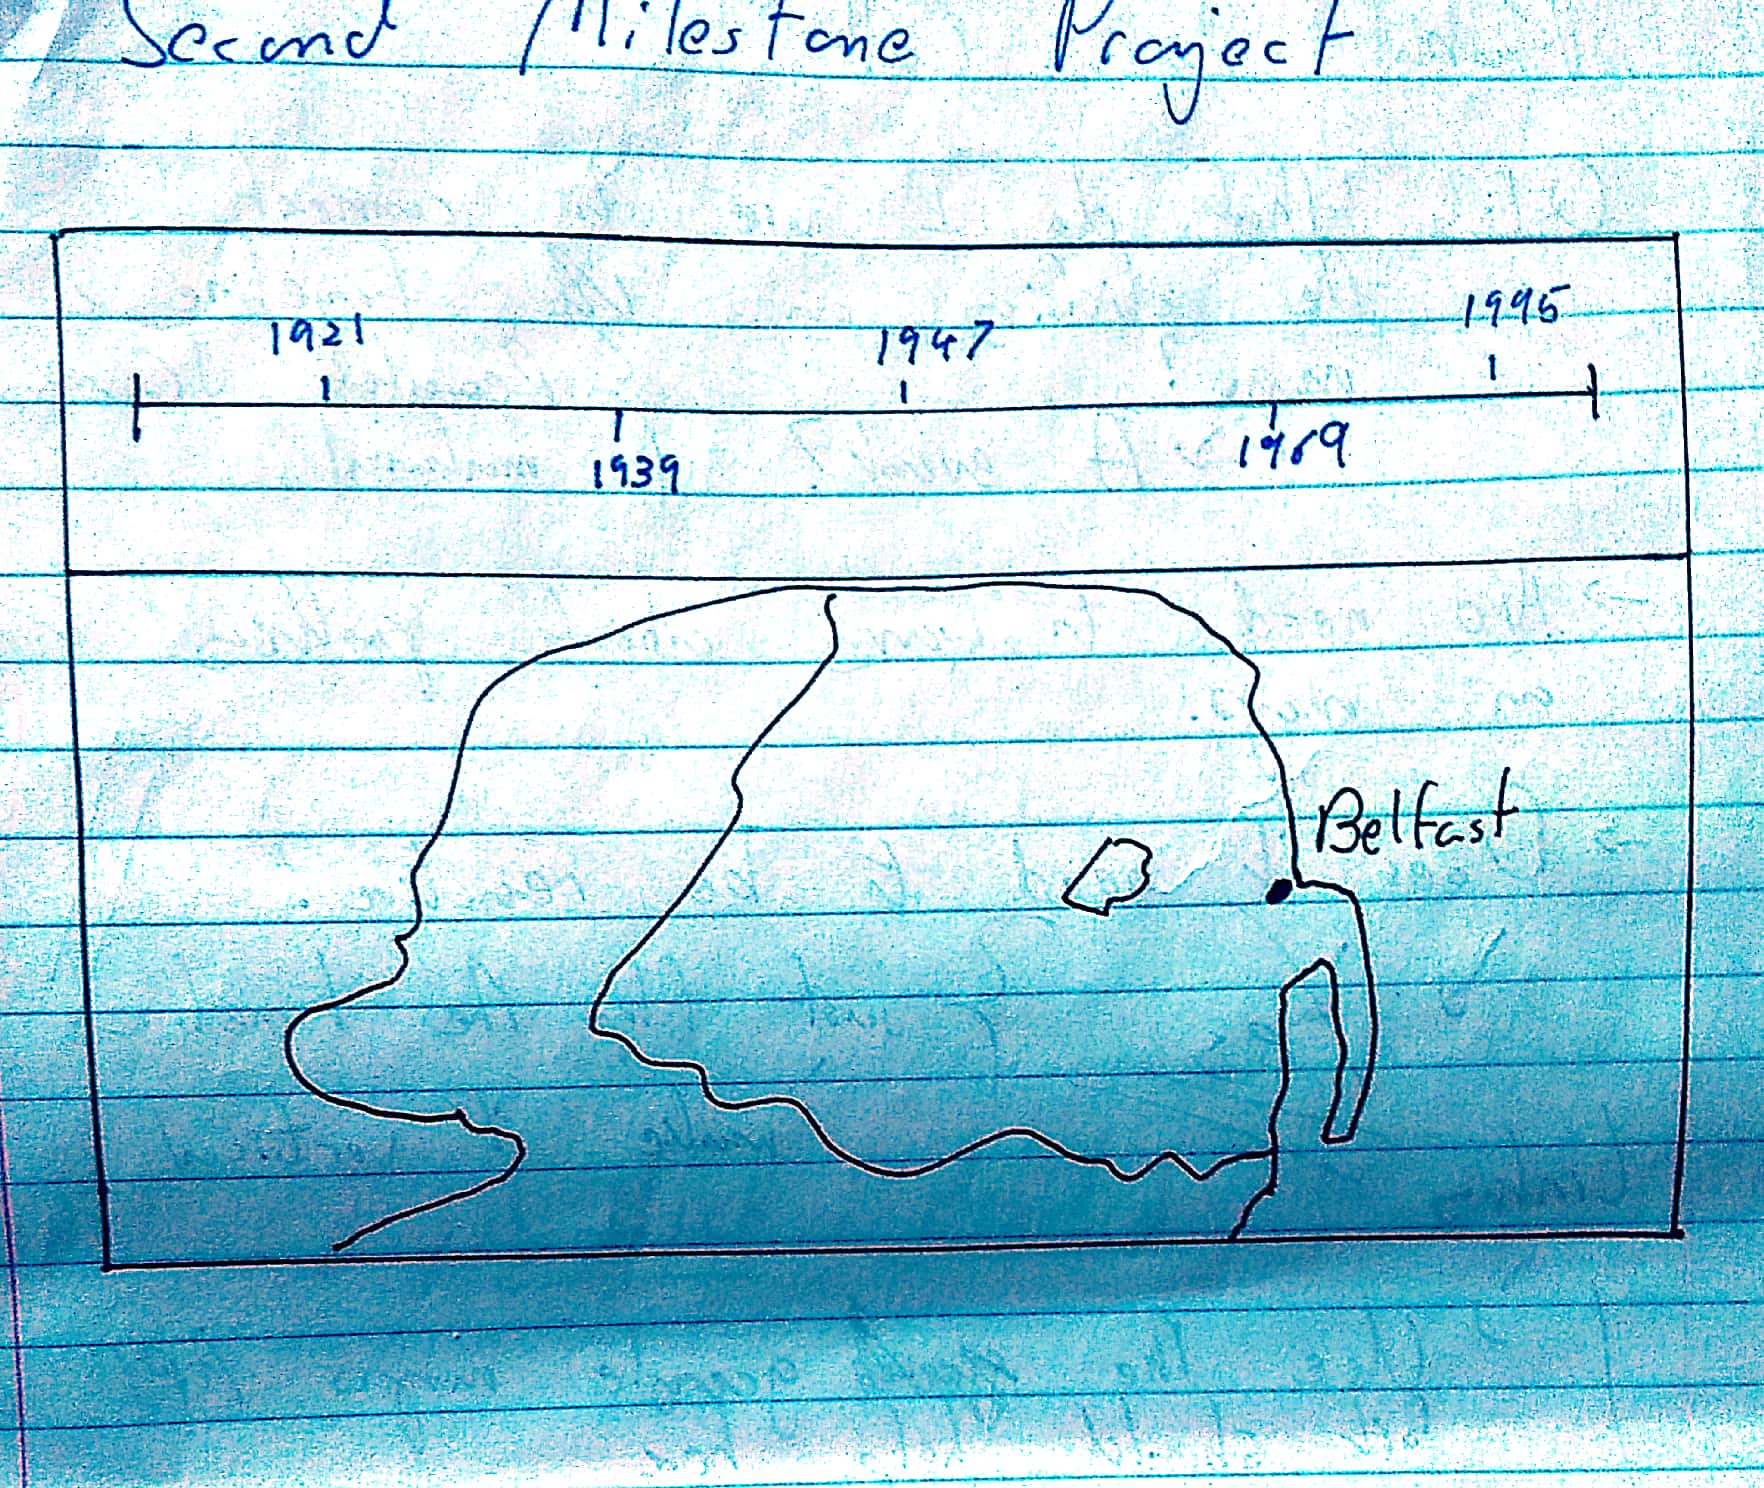 Second Milestone Project
1921 1947 1995
1939 1969
Belfast